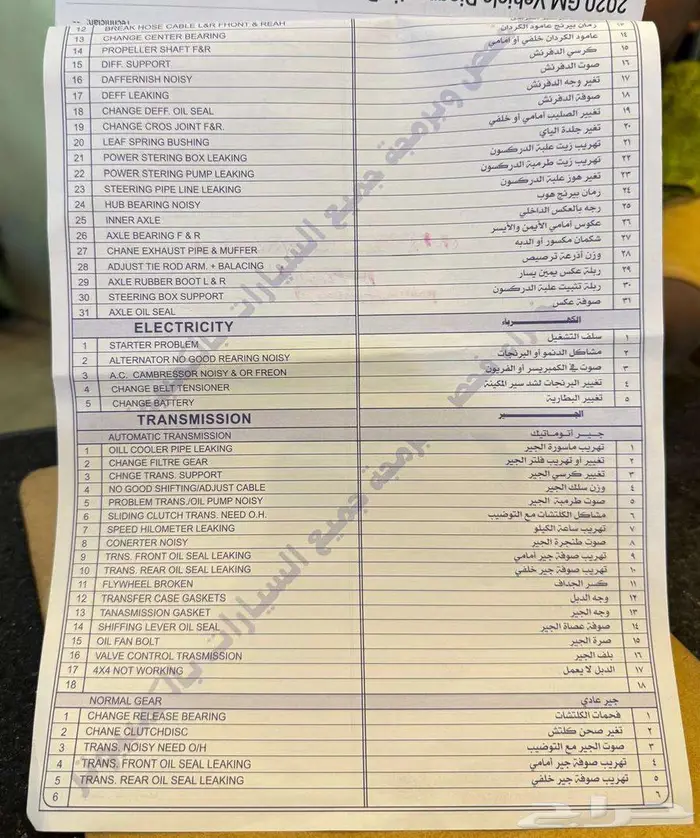 2020 GM Vehicle
12 BREAK HOSE CABLE L&R FHONT & REAH رمان بيرنج عامود الكردان
13 CHANGE CENTER BEARING عامود الكردان خلفي أو أمامي ١٤
14 PROPELLER SHAFT F&R كرسي الدفرنش ١٥
15 DIFF. SUPPORT صوت الدفرنش ١٦
16 DAFFERNISH NOISY تغير وجه الدفرنش ١٧
17 DEFF LEAKING صوفة الدفرنش ١٨
18 CHANGE DEFF. OIL SEAL تغيير الصليب أمامي أو خلفي ١٩
19 CHANGE CROS JOINT F&R. تغير جلدة الياي ٢٠
20 LEAF SPRING BUSHING تهريب زيت علبة الدركسون ٢١
21 POWER STERING BOX LEAKING تهريب زيت طرمبة الدركسون ٢٢
22 POWER STERING PUMP LEAKING تغير هوز علبة الدركسون ٢٣
23 STEERING PIPE LINE LEAKING رمان بيرنج هوب ٢٤
24 HUB BEARING NOISY رجه بالعكس الداخلي ٢٥
25 INNER AXLE عكوس أمامي الأيمن والأيسر ٢٦
26 AXLE BEARING F & R شكمان مكسور أو الدبه ٢٧
27 CHANE EXHAUST PIPE & MUFFER وزن أذرعة ترصيص ٢٨
28 ADJUST TIE ROD ARM. + BALACING ربلة عكس يمين يسار ٢٩
29 AXLE RUBBER BOOT L & R ربلة تثبيت علبة الدركسون ٣٠
30 STEERING BOX SUPPORT صوفة عكس ٣١
31 AXLE OIL SEAL
ELECTRICITY الكهرباء
1 STARTER PROBLEM سلف التشغيل ١
2 ALTERNATOR NO GOOD REARING NOISY مشاكل الدنمو أو البرنجات ٢
3 A.C. CAMBRESSOR NOISY & OR FREON صوت في الكمبريسر أو الفريون ٣
4 CHANGE BELT TENSIONER تغيير البرنجات لشد سير المكينة ٤
5 CHANGE BATTERY تغيير البطارية ٥
TRANSMISSION الجير
AUTOMATIC TRANSMISSION جير أتوماتيك
1 OILL COOLER PIPE LEAKING تهريب ماسورة الجير ١
2 CHANGE FILTRE GEAR تغيير أو تهريب فلتر الجير ٢
3 CHNGE TRANS. SUPPORT تغيير كرسي الجير ٣
4 NO GOOD SHIFTING/ADJUST CABLE وزن سلك الجير ٤
5 PROBLEM TRANS./OIL PUMP NOISY صوت طرمبة الجير ٥
6 SLIDING CLUTCH TRANS. NEED O.H. مشاكل الكلتشات مع التوضيب ٦
7 SPEED HILOMETER LEAKING تهريب ساعة الكيلو ٧
8 CONERTER NOISY صوت طنجرة الجير ٨
9 TRNS. FRONT OIL SEAL LEAKING تهريب صوفة جير أمامي ٩
10 TRANS. REAR OIL SEAL LEAKING تهريب صوفة جير خلفي ١٠
11 FLYWHEEL BROKEN كسر الجداف ١١
12 TRANSFER CASE GASKETS وجه الدبل ١٢
13 TANASMISSION GASKET وجه الجير ١٣
14 SHIFFING LEVER OIL SEAL صوفة عصاة الجير ١٤
15 OIL FAN BOLT صرة الجير ١٥
16 VALVE CONTROL TRASMISSION بلف الجير ١٦
17 4X4 NOT WORKING الدبل لا يعمل ١٧
18 ١٨
NORMAL GEAR جير عادي
1 CHANGE RELEASE BEARING فحمات الكلتشات ١
2 CHANE CLUTCHDISC تغير صحن كلتش ٢
3 TRANS. NOISY NEED O/H صوت الجير مع التوضيب ٣
4 TRANS. FRONT OIL SEAL LEAKING تهريب صوفة جير أمامي ٤
5 TRANS. REAR OIL SEAL LEAKING تهريب صوفة جير خلفي ٥
6 ٦
حراج